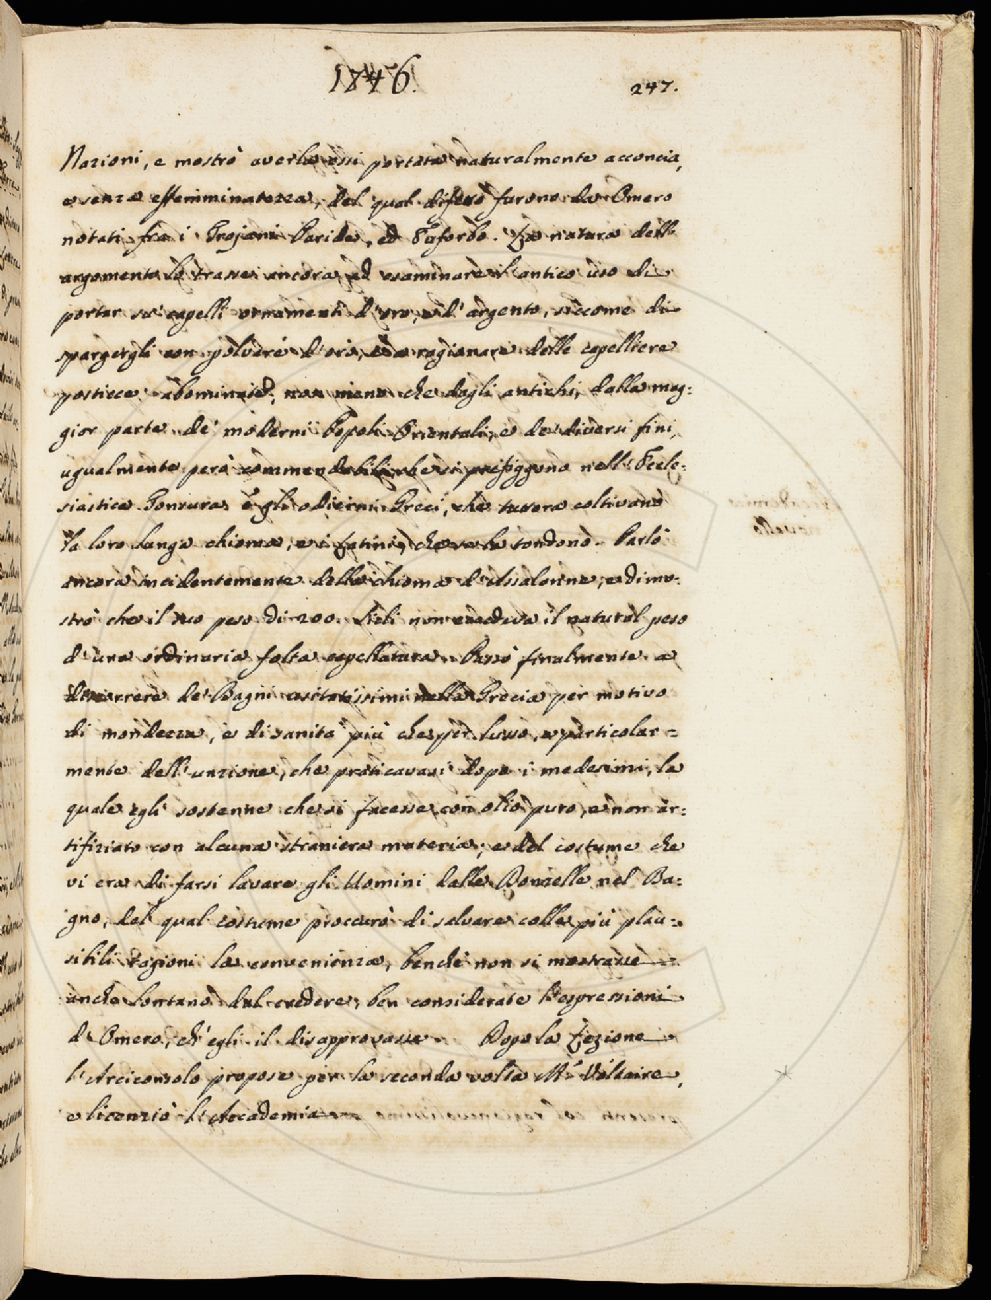 1746.
247.
Nazioni, e mostrò averla essi portata naturalmente acconcia,
e senza effemminatezza, del qual difetto furono da Omero
notati fra i Trojani Paride, ed Euforbo. La natura dell'
argomento lo trasse ancora ad esaminare l'antico uso di
portar su' capelli ornamenti d'oro, e d'argento, siccome di
spargergli con polvere d'oro, e a ragionare delle capelliere
posticce abominate, non meno che dagli antichi, dalla mag:
gior parte de' moderni Popoli Orientali, e da diversi fini,
ugualmente però commendabili che si prefiggono nell'Eccle:
siastica Tonsura e gli odierni Greci, che tutora coltivano
la loro lunga chioma, e i Latini, che se la tondono. Parlò
ancora incidentemente della chioma d'Assalonne, e dimo:
strò che il suo peso di 200. Sicli non eccedeva il natural peso
d'una ordinaria folta capellatura. Passò finalmente a
discorrere de' Bagni usitatissimi nella Grecia per motivo
di mondezza, e di sanità più che per lusso, e particolar =
mente dell'unzione, che praticavasi dopo i medesimi, la
quale egli sostenne che si facesse con olio puro, e non ar:
tifiziato con alcuna straniera materia, e del costume che
vi era di farsi lavare gli Uomini dalle Donzelle nel Ba:
gno, del qual costume proccurò di salvare colle più plau:
sibili ragioni la convenienza, benchè non si mostrasse
anche lontano dal credere, ben considerate l'espressioni
d'Omero, ch'egli il disapprovasse. Dopo la Lezione
l'Arciconsolo propose per la seconda volta Mr. Voltaire,
e licenziò l'Accademia